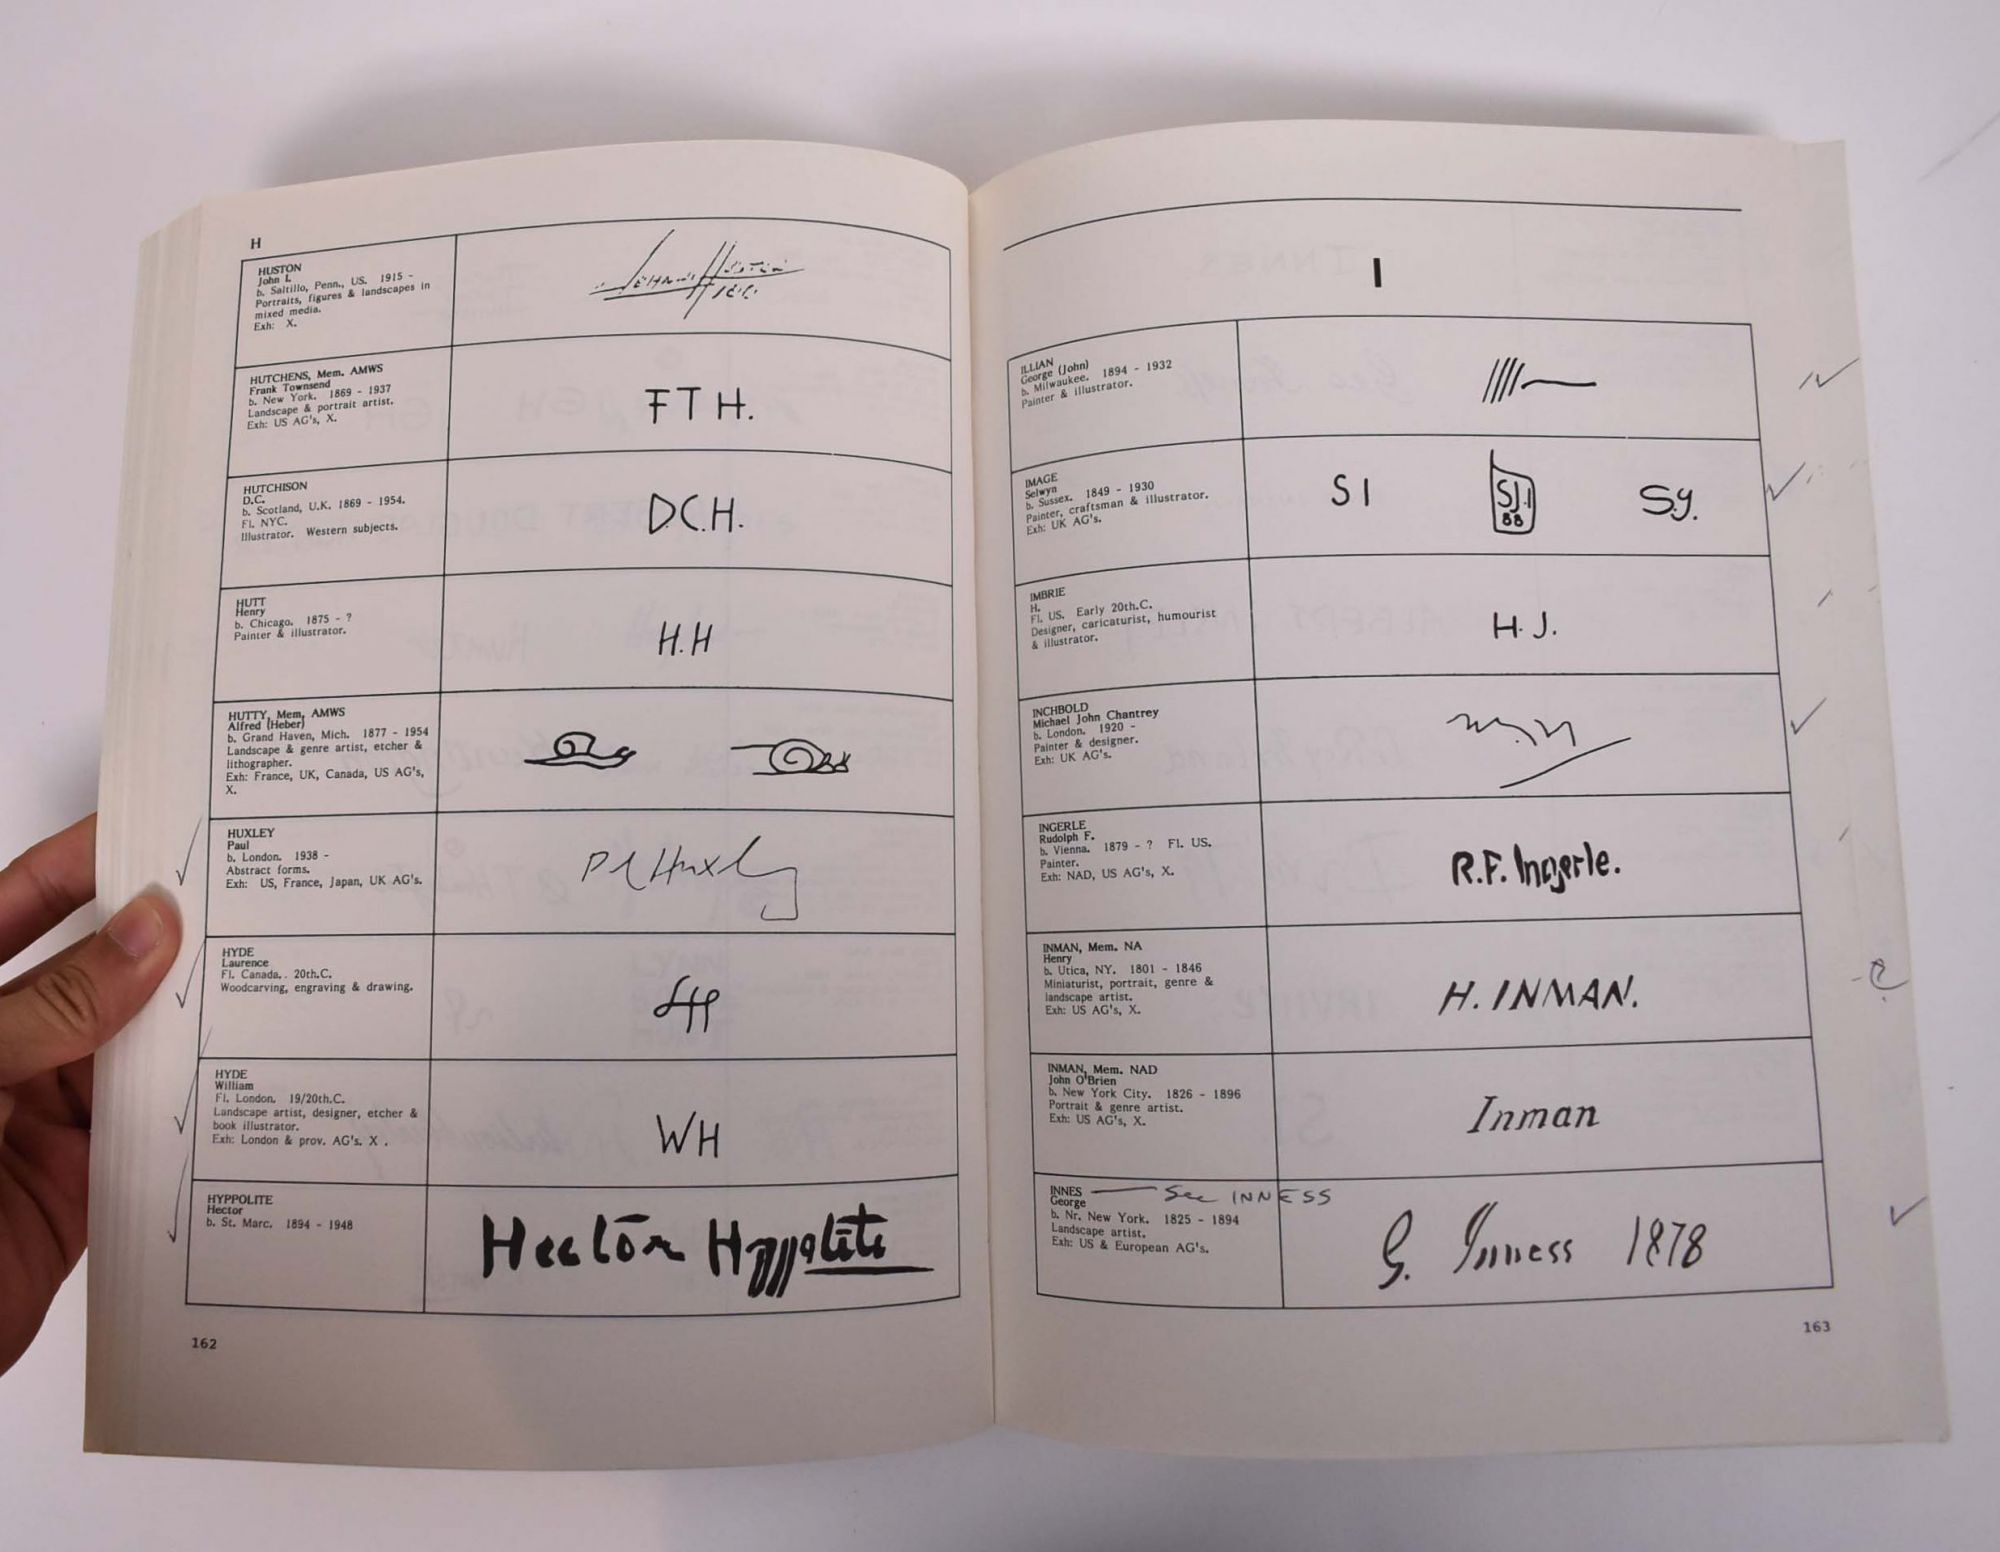 H
HUSTON
John L
b. Saltillo, Penn., US. 1915 -
Portraits, figures & landscapes in
mixed media.
Exh: X.
JOHN HUSTON
HUTCHENS, Mem. AMWS
Frank Townsend
b. New York. 1869 - 1937
Landscape & portrait artist.
Exh: US AG's, X.
FTH.
HUTCHISON
D.C.
b. Scotland, U.K. 1869 - 1954.
Fl. NYC.
Illustrator. Western subjects.
D.C.H.
HUTT
Henry
b. Chicago. 1875 - ?
Painter & illustrator.
H.H
HUTTY, Mem. AMWS
Alfred (Heber)
b. Grand Haven, Mich. 1877 - 1954
Landscape & genre artist, etcher &
lithographer.
Exh: France, UK, Canada, US AG's,
X.
HUXLEY
Paul
b. London. 1938 -
Abstract forms.
Exh: US, France, Japan, UK AG's.
Pl Huxley
HYDE
Laurence
Fl. Canada. 20th.C.
Woodcarving, engraving & drawing.
LH
HYDE
William
Fl. London. 19/20th.C.
Landscape artist, designer, etcher &
book illustrator.
Exh: London & prov. AG's. X .
WH
HYPPOLITE
Hector
b. St. Marc. 1894 - 1948
Hector Hyppolite
162
I
ILLIAN
George (John)
b. Milwaukee. 1894 - 1932
Painter & illustrator.
IMAGE
Selwyn
b. Sussex. 1849 - 1930
Painter, craftsman & illustrator.
Exh: UK AG's.
SI
SJ.I
88
S.y.
IMBRIE
H.
Fl. US. Early 20th.C.
Designer, caricaturist, humourist
& illustrator.
H.J.
INCHBOLD
Michael John Chantrey
b. London. 1920 -
Painter & designer.
Exh: UK AG's.
INGERLE
Rudolph F.
b. Vienna. 1879 - ? Fl. US.
Painter.
Exh: NAD, US AG's, X.
R.F. Ingerle.
INMAN, Mem. NA
Henry
b. Utica, NY. 1801 - 1846
Miniaturist, portrait, genre &
landscape artist.
Exh: US AG's, X.
H. INMAN.
INMAN, Mem. NAD
John O'Brien
b. New York City. 1826 - 1896
Portrait & genre artist.
Exh: US AG's, X.
Inman
INNES — See INNESS
George
b. Nr. New York. 1825 - 1894
Landscape artist.
Exh: US & European AG's.
G. Inness 1878
163